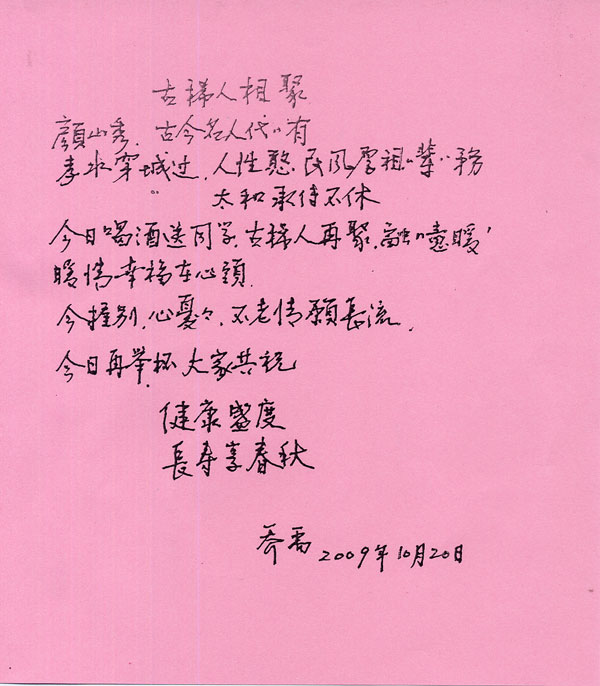 古稀人相聚
顏山秀．古今名人代〃有
孝水穿城过，人性憨．民风厚祖〃輩〃務
太和承侍不休
今日喝酒送同学．古稀人再聚．融〃噫暖
暖情幸福在心頭．
今撞别，心憂々，不老情願長流．
今日再举杯．大家共祝
健康盛度
長寿享春秋
喬禹 2009年10月20日